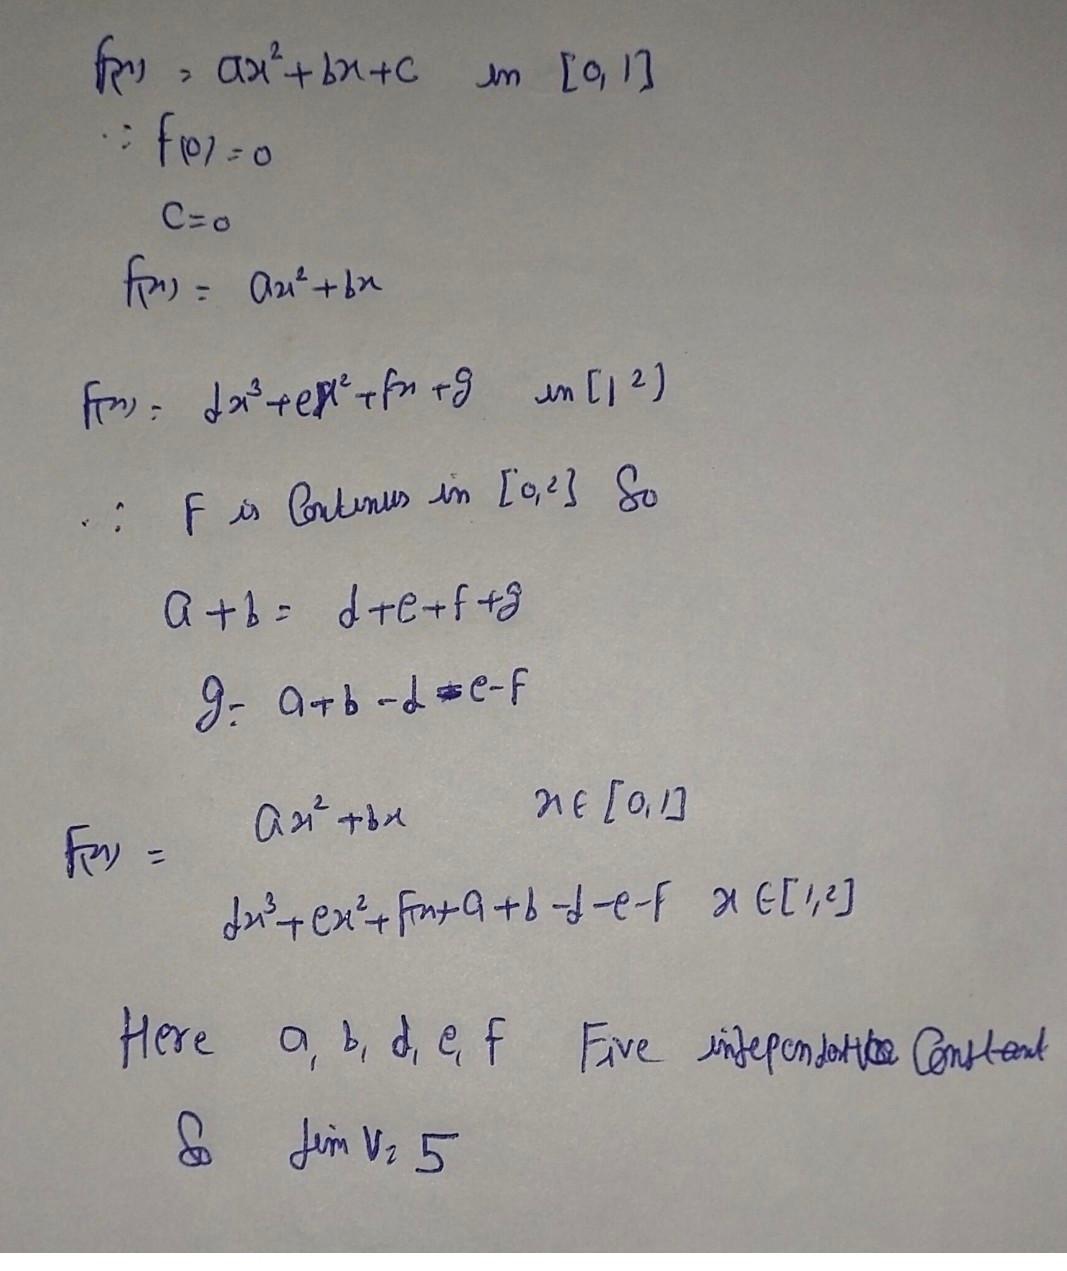 f(x) = ax²+bx+c in [0,1]
∵ f(0)=0
C=0
f(x) = ax²+bx
f(x) = dx³+ex²+fx+g in [1 2]
∵ F is Continus in [0,2] So
a+b = d+e+f+g
g = a+b-d-e-f
ax²+bx x∈[0,1]
f(x) =
dx³+ex²+fx+a+b-d-e-f x∈[1,2]
Here a, b, d, e, f Five Constant
So dim V = 5